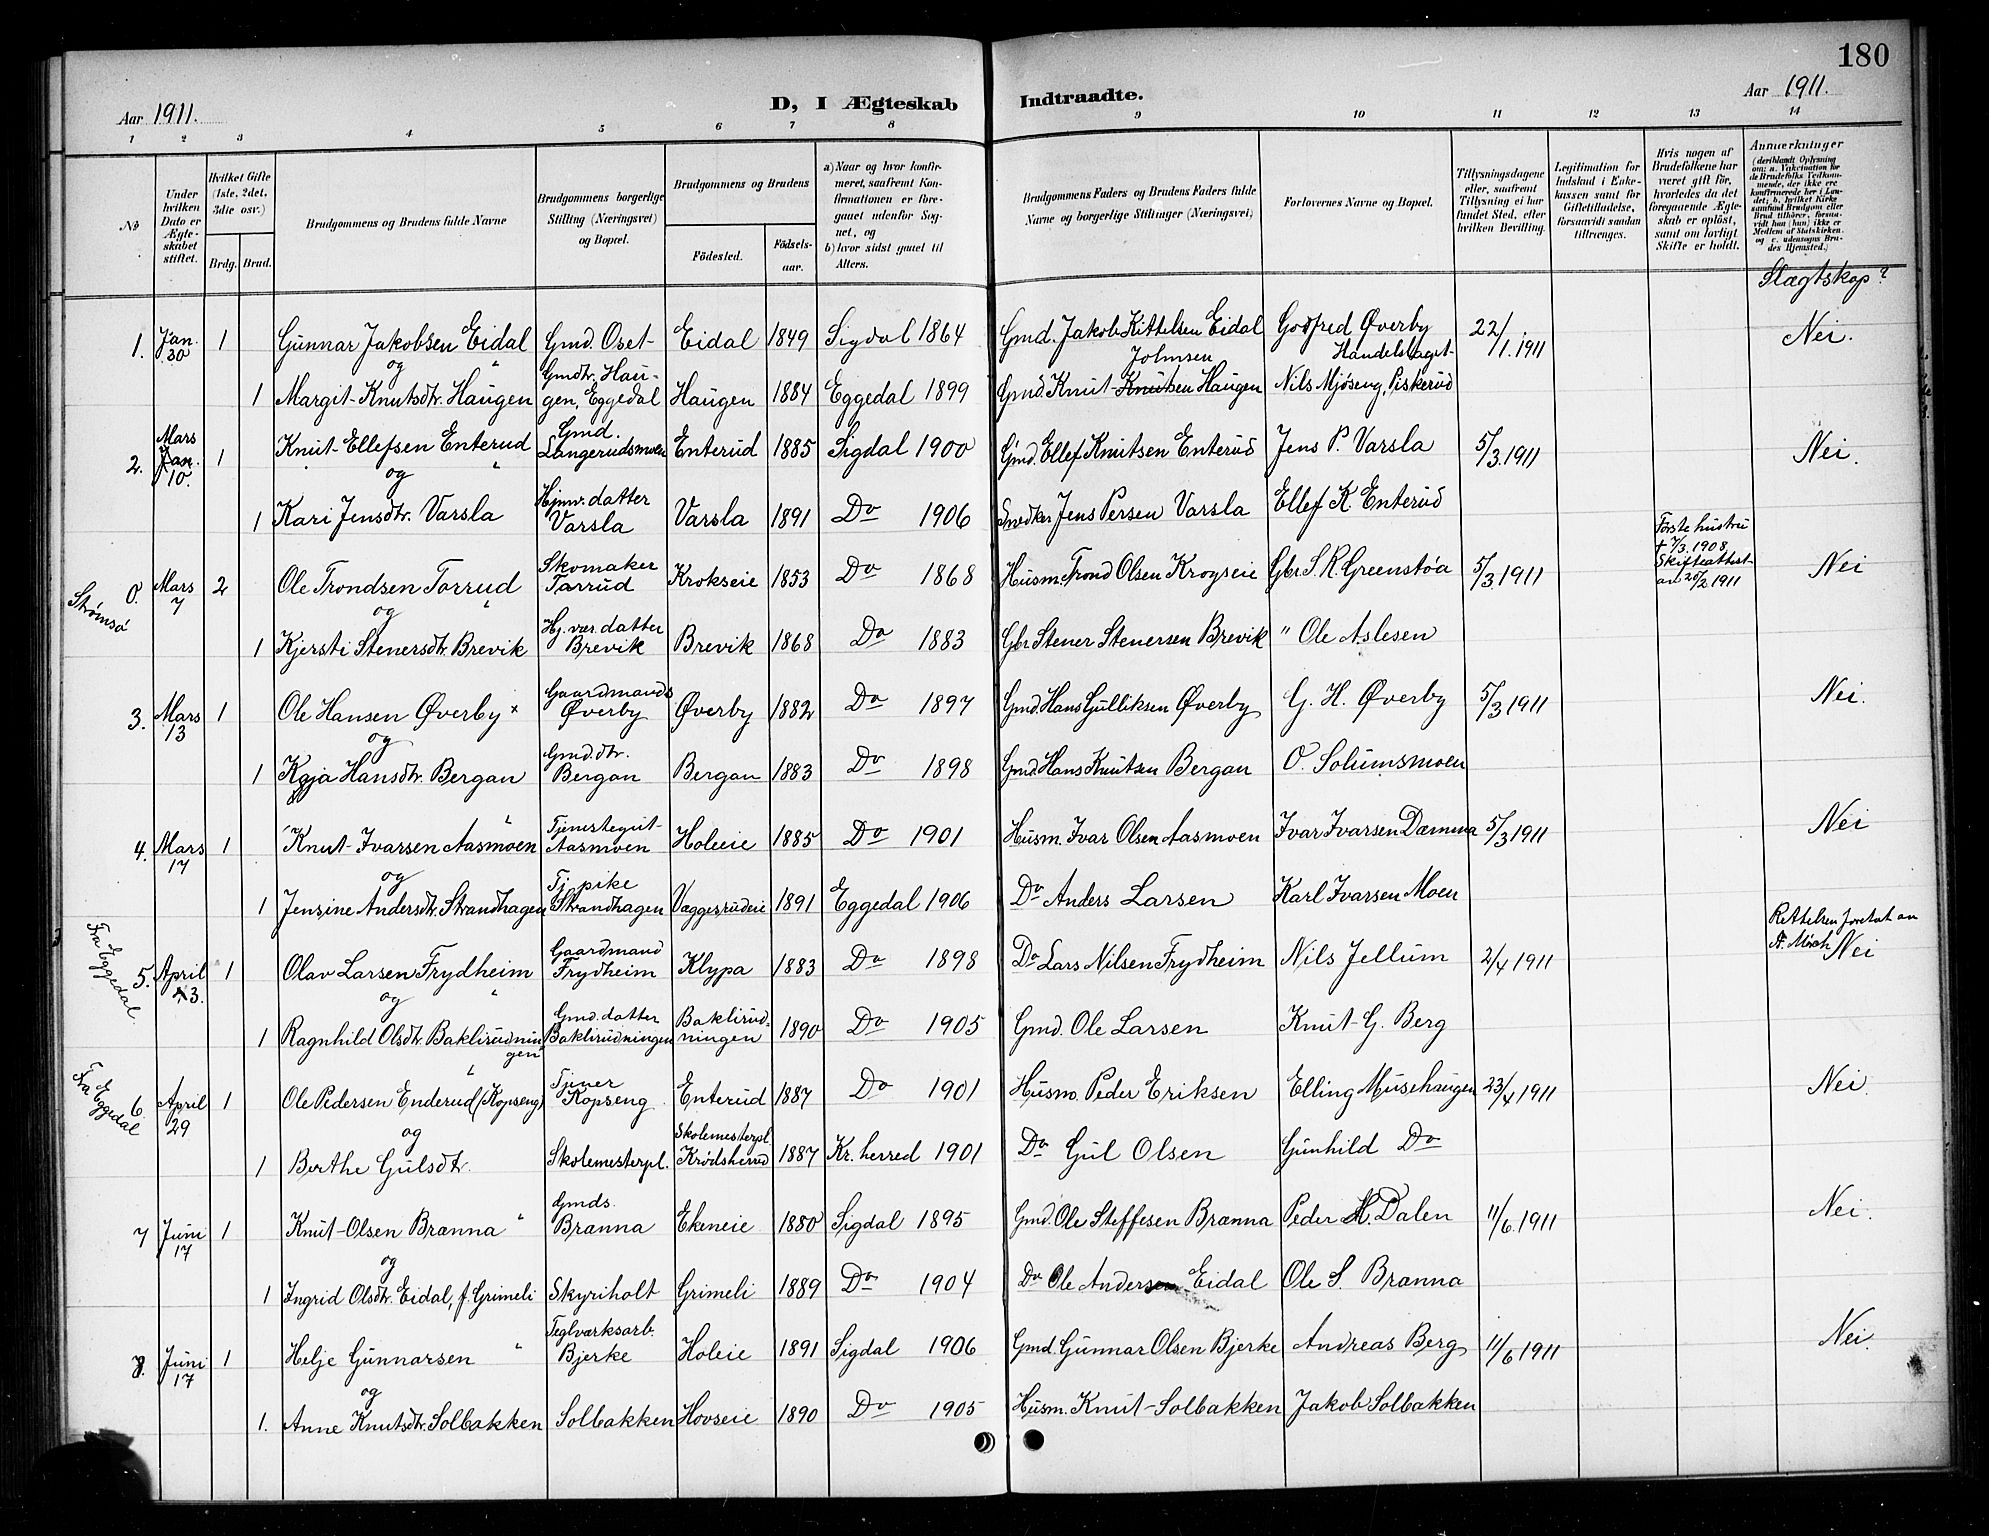 180
Aar 1911.
D, I Ægteskab Indtraadte.
Aar 1911.
1 2 3 4 5 6 7 8 9 10 11 12 13 14
No
Under hvilken Dato er Ægteskabet stiftet.
Hvilket Gifte (1ste, 2det, 3die osv.)
Brdg. Brud.
Brudgommens og Brudens fulde Navne
Brudgommens borgerlige Stilling (Næringsvei) og Bopæl.
Brudgommens og Brudens
Födested. Födselsaar.
a) Naar og hvor konfirmeret, saafremt Konfirmationen er foregaaet udenfor Sognet, og
b) hvor sidst gaaet til Alters.
Brudgommens Faders og Brudens Faders fulde Navne og borgerlige Stillinger (Næringsvei)
Forlovernes Navne og Bopæl.
Tillysningsdagene eller, saafremt Tillysning ei har fundet Sted, efter hvilken Bevilling.
Legitimation for Indskud i Enkekassen samt for Giftetilladelse, forsaavidt saadan tiltrænges.
Hvis nogen af Brudefolkene har været gift för, hvorledes da det foregaaende Ægteskab er oplöst, samt om lovligt Skifte er holdt.
Anmærkninger
(deriblandt Oplysning om: a. Vakcination for de Brudefolks Vedkommende, der ikke ere konfirmerede her i Landet; b. hvilket Kirkesamfund Brudgom eller Brud tilhörer, forsaavidt han (hun) ikke er Medlem af Statskirken og c. udensogns Brudes Hjemsted.)
Slægtskap?
1. Jan. 30 1 Gunnar Jakobsen Eidal Gmd. Oset- Eidal 1849 Sigdal 1864 Gmd. Jakob Kittelsen Eidal Godfred Øverby Handelslaget 22/1.1911 Nei.
og
1 Margit Knutsdtr. Haugen Gmdtr. Haugen, Eggedal Haugen 1884 Eggedal 1899 Gmd. Knut Knutsen Johnsen Haugen Nils Mjøseng, Piskerud
2. Mars Jan. 10. 1 Knut Ellefsen Enterud " Gmd. Langerudsmoen Enterud 1885 Sigdal 1900 Gmd. Ellef Knutsen Enterud Jens P. Varsla 5/3.1911 Nei.
og
1 Kari Jensdtr. Varsla Hjmv. datter Varsla Varsla 1891 Do 1906 Snedker Jens Persen Varsla Ellef K. Enterud
Strømsø 0. Mars 7 2 Ole Trondsen Torrud " Skomaker Torrud Krokseie 1853 Do 1868 Husm. Trond Olsen Krogseie Gbr. S. R. Greenstøa 5/3.1911 Første hustru † 7/3.1908 Skifteattest av 20/2 1911 Nei
og
1 Kjersti Stenersdtr. Brevik Hj. vær. datter Brevik Brevik 1868 Do 1883 Gbr Stener Stenersen Brevik " Ole Aslesen
3. Mars 13 1 Ole Hansen Øverby x Gaardmands Øverby Øverby 1882 Do 1897 Gmd. Hans Gulliksen Øverby G. H. Øverby 5/3 1911 Nei.
og
1 Kaja Hansdtr. Bergan Gmd. dtr. Bergan Bergan 1883 Do 1898 Gmd. Hans Knutsen Bergan O. Solumsmoen
4. Mars 17 1 Knut Ivarsen Aasmoen " Tjenstegut Aasmoen Holeeie 1885 Do 1901 Husm. Ivar Olsen Aasmoen Ivar Ivarsen Dæmma 5/3 1911 Nei
og
1 Jensine Andersdtr. Strandhagen Tj. pike Strandhagen Væggesrudeie 1891 Eggedal 1906 Do Anders Larsen Karl Ivarsen Moen
Fra Eggedal 5. April 3. 1 Olav Larsen Frydheim " Gaardmand Frydheim Klypa 1883 Do 1898 Do Lars Nilsen Frydheim Nils Jellum 2/4 1911 Rettelsen foretat av A. Mørch Nei
og
1 Ragnhild Olsdtr. Baklirudningen Gmd. datter Baklirudningen Baklirudningen 1890 Do 1905 Gmd. Ole Larsen Knut G. Berg
Fra Eggedal 6 April 29 1 Ole Pedersen Enderud (Kopseng) " Tjener Kopseng Enterud 1887 Do 1901 Husm. Peder Eriksen Elling Musehaugen 23/4 1911 Nei.
og
1 Berthe Gulsdtr. Skolemesterpl. Skolemesterpl. Krødsherred 1887 Kr. herred 1901 Do Gul Olsen Gunhild Do
7 Juni 17 1 Knut Olsen Brænna " Gmds. Brænna Ekeneie 1880 Sigdal 1895 Gmd. Ole Steffesen Brænna Peder H. Dalen 11/6.1911 Nei.
og
1 Ingrid Olsdtr. Eidal, f. Grimeli Skyriholt Grimeli 1889 Do 1904 Do Ole Andersen Eidal Ole S. Brænna
8. Juni 17 1 Helje Gunnarsen " Teglværksarb. Bjerke Holeie 1891 Sigdal 1906 Gmd. Gunnar Olsen Bjerke Andreas Berg 11/6 1911 Nei.
og
1. Anne Knutsdtr. Solbakken Solbakken Hovseie 1890 Do 1905 Husm. Knut Solbakken Jakob Solbakken